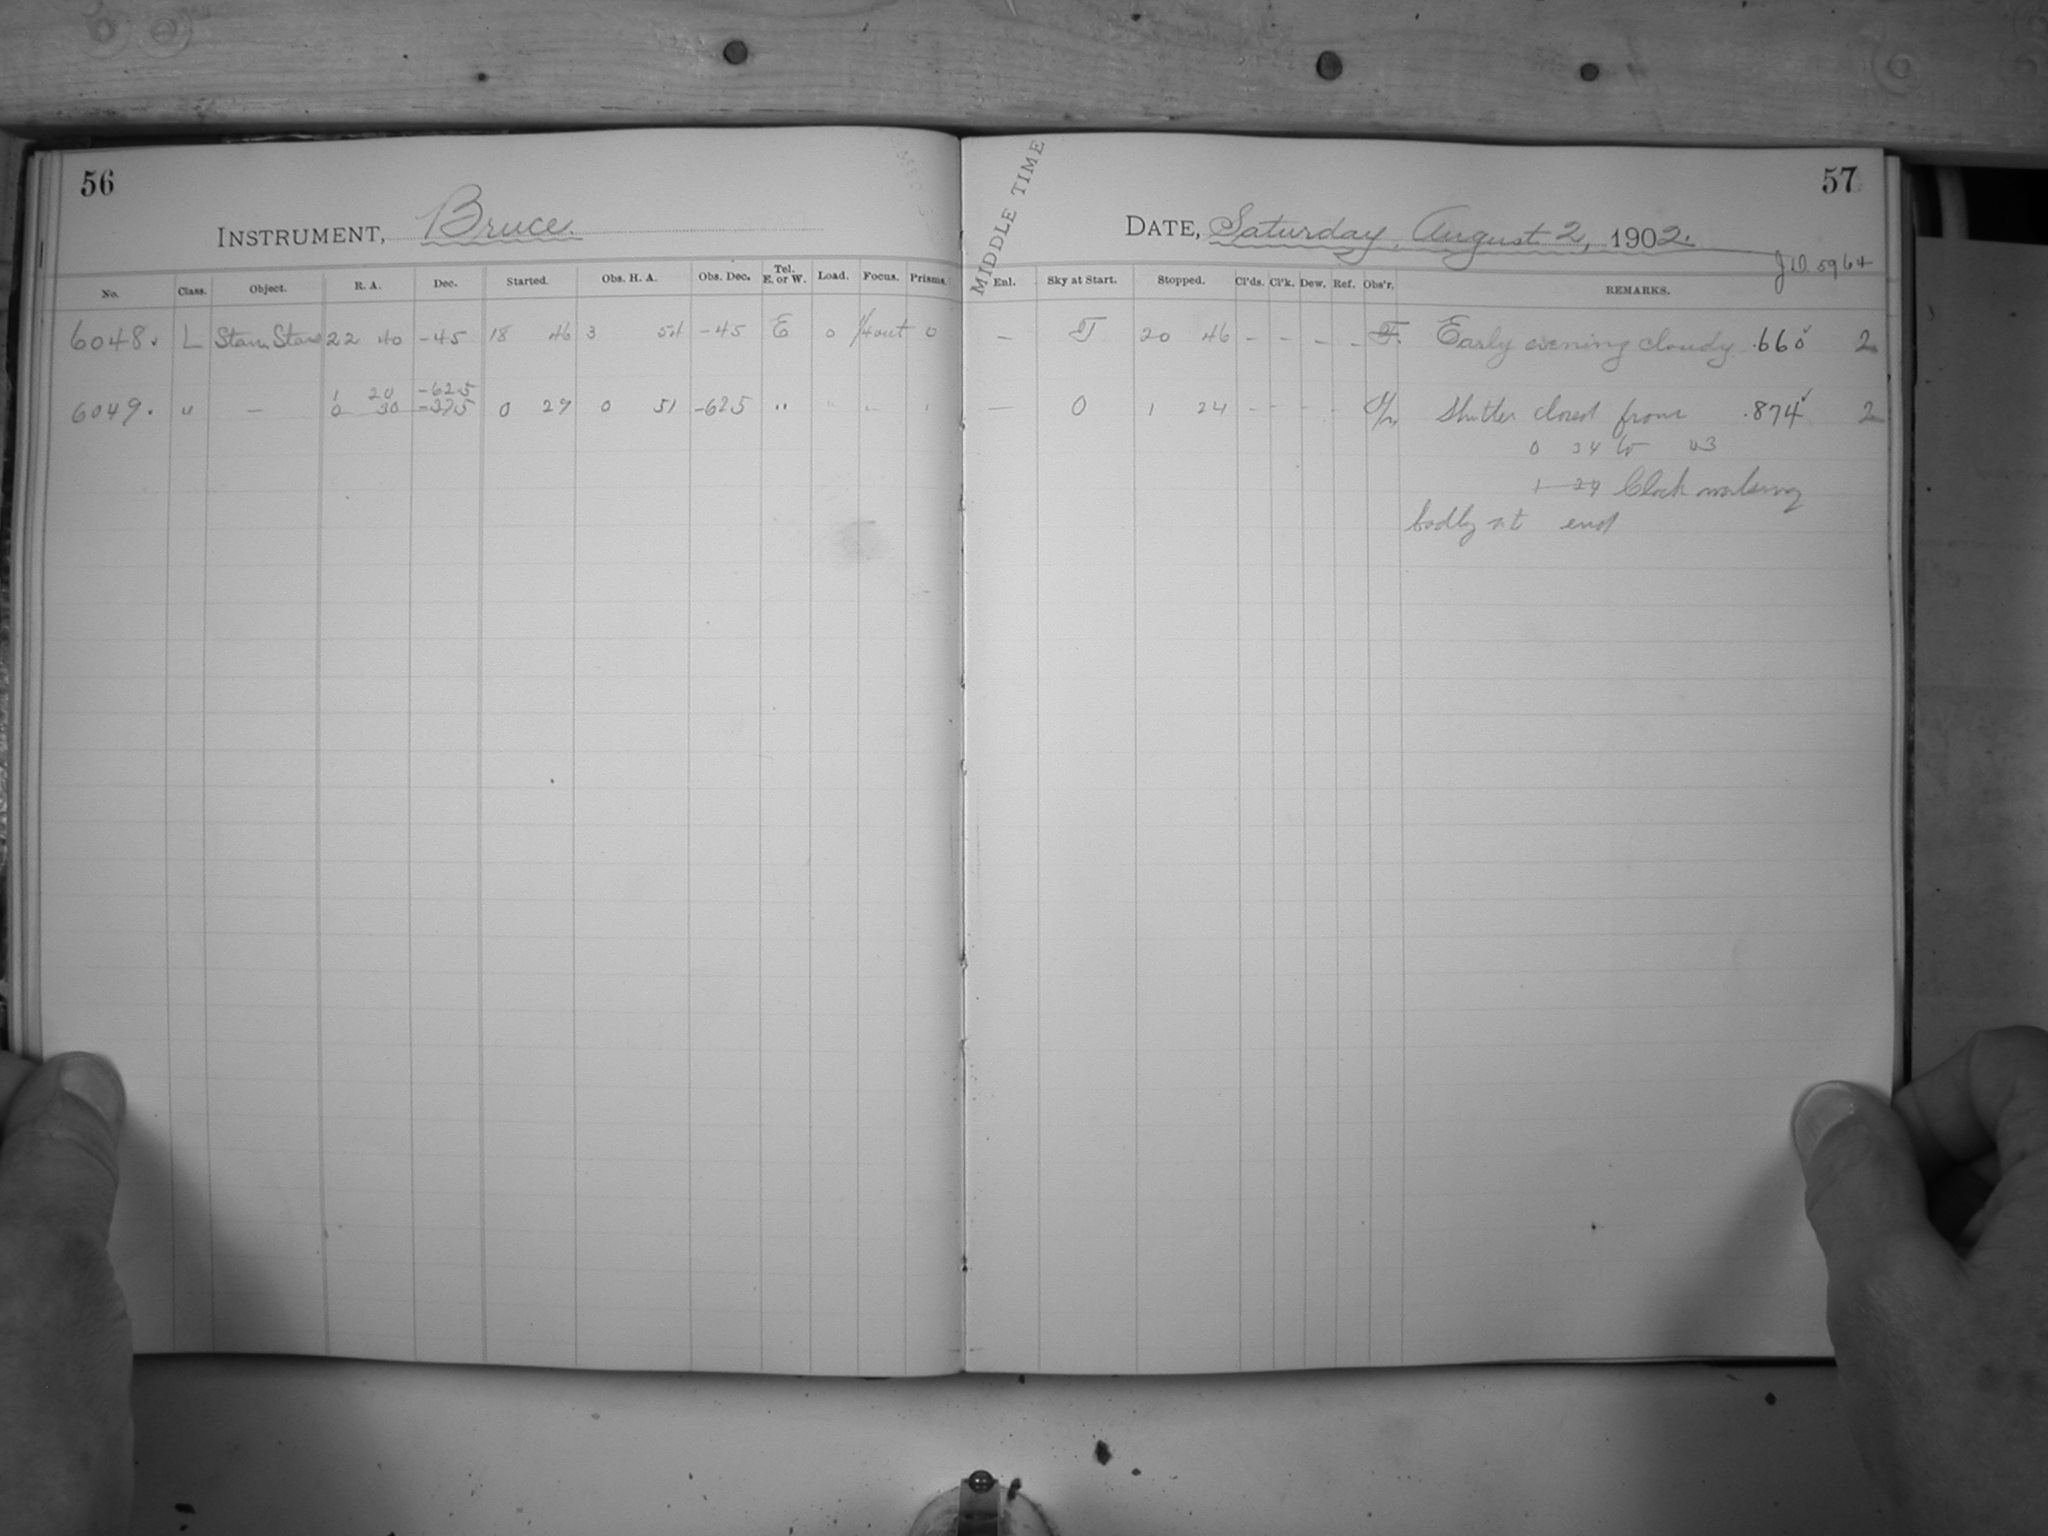 56
INSTRUMENT, Bruce.
No. Class. Object. R. A. Dec. Started. Obs. H. A. Obs. Dec. Tel. E. or W. Load. Focus. Prisms.
6048. L Stars 22 40 -45 18 46 3 54 -45 E 0 1/4 out 0
1 20 -62.5
6049. " — 0 30 -37.5 0 27 0 51 -62.5 " " " '
MIDDLE TIME
57
DATE, Saturday, August 2, 1902.
J.D. 5964
Enl. Sky at Start. Stopped. Cl'ds. Cl'k. Dew. Ref. Obs'r. REMARKS.
— 20 46 - - - - F. Early evening cloudy .660 2
— 0 1 24 - - - - Shutter closed from .874 2
0 34 to 43
1 24 Clock working
badly at end